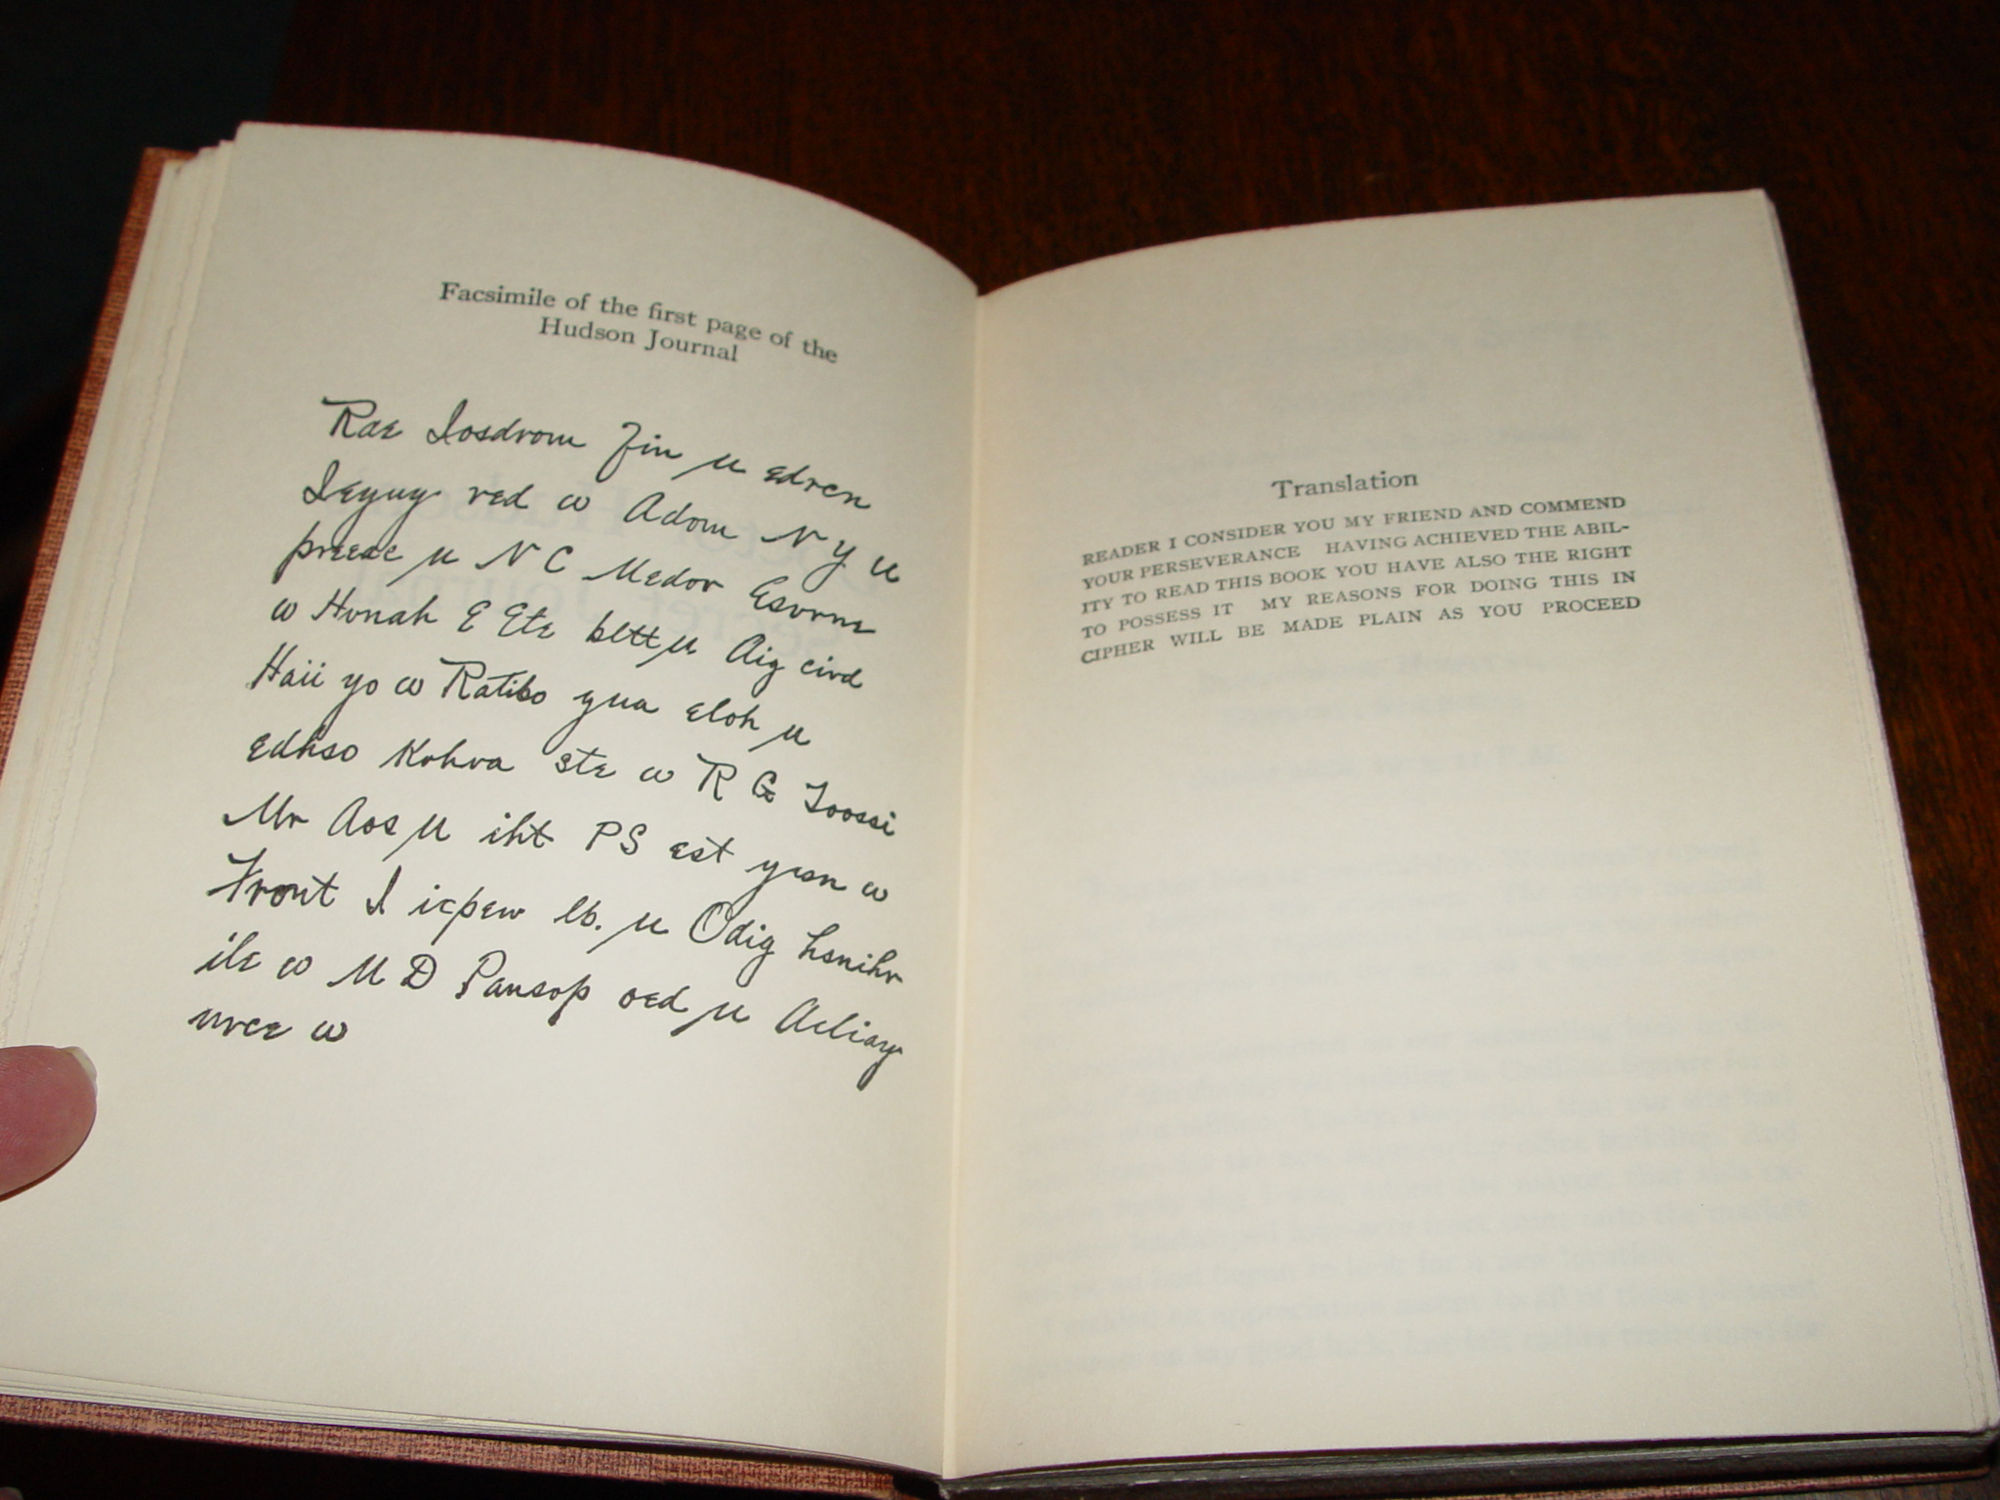 Facsimile of the first page of the
Hudson Journal
Rae Iosdrom Fin µ edrcn
Ieyuy red ω Adom N Y u
preeac µ N C Medor Esvrne
ω Hvnah E Ete bltt µ Aig civd
Haii yo ω Ratibo yua eloh µ
edhso Kohva ste ω R G Toossi
Mr Aos µ iht PS est yesn ω
Front I icpew lb. µ Odig hsnihr
ile ω M D Pansop oed µ Aeliay
urce ω
Translation
READER I CONSIDER YOU MY FRIEND AND COMMEND
YOUR PERSEVERANCE HAVING ACHIEVED THE ABIL-
ITY TO READ THIS BOOK YOU HAVE ALSO THE RIGHT
TO POSSESS IT MY REASONS FOR DOING THIS IN
CIPHER WILL BE MADE PLAIN AS YOU PROCEED